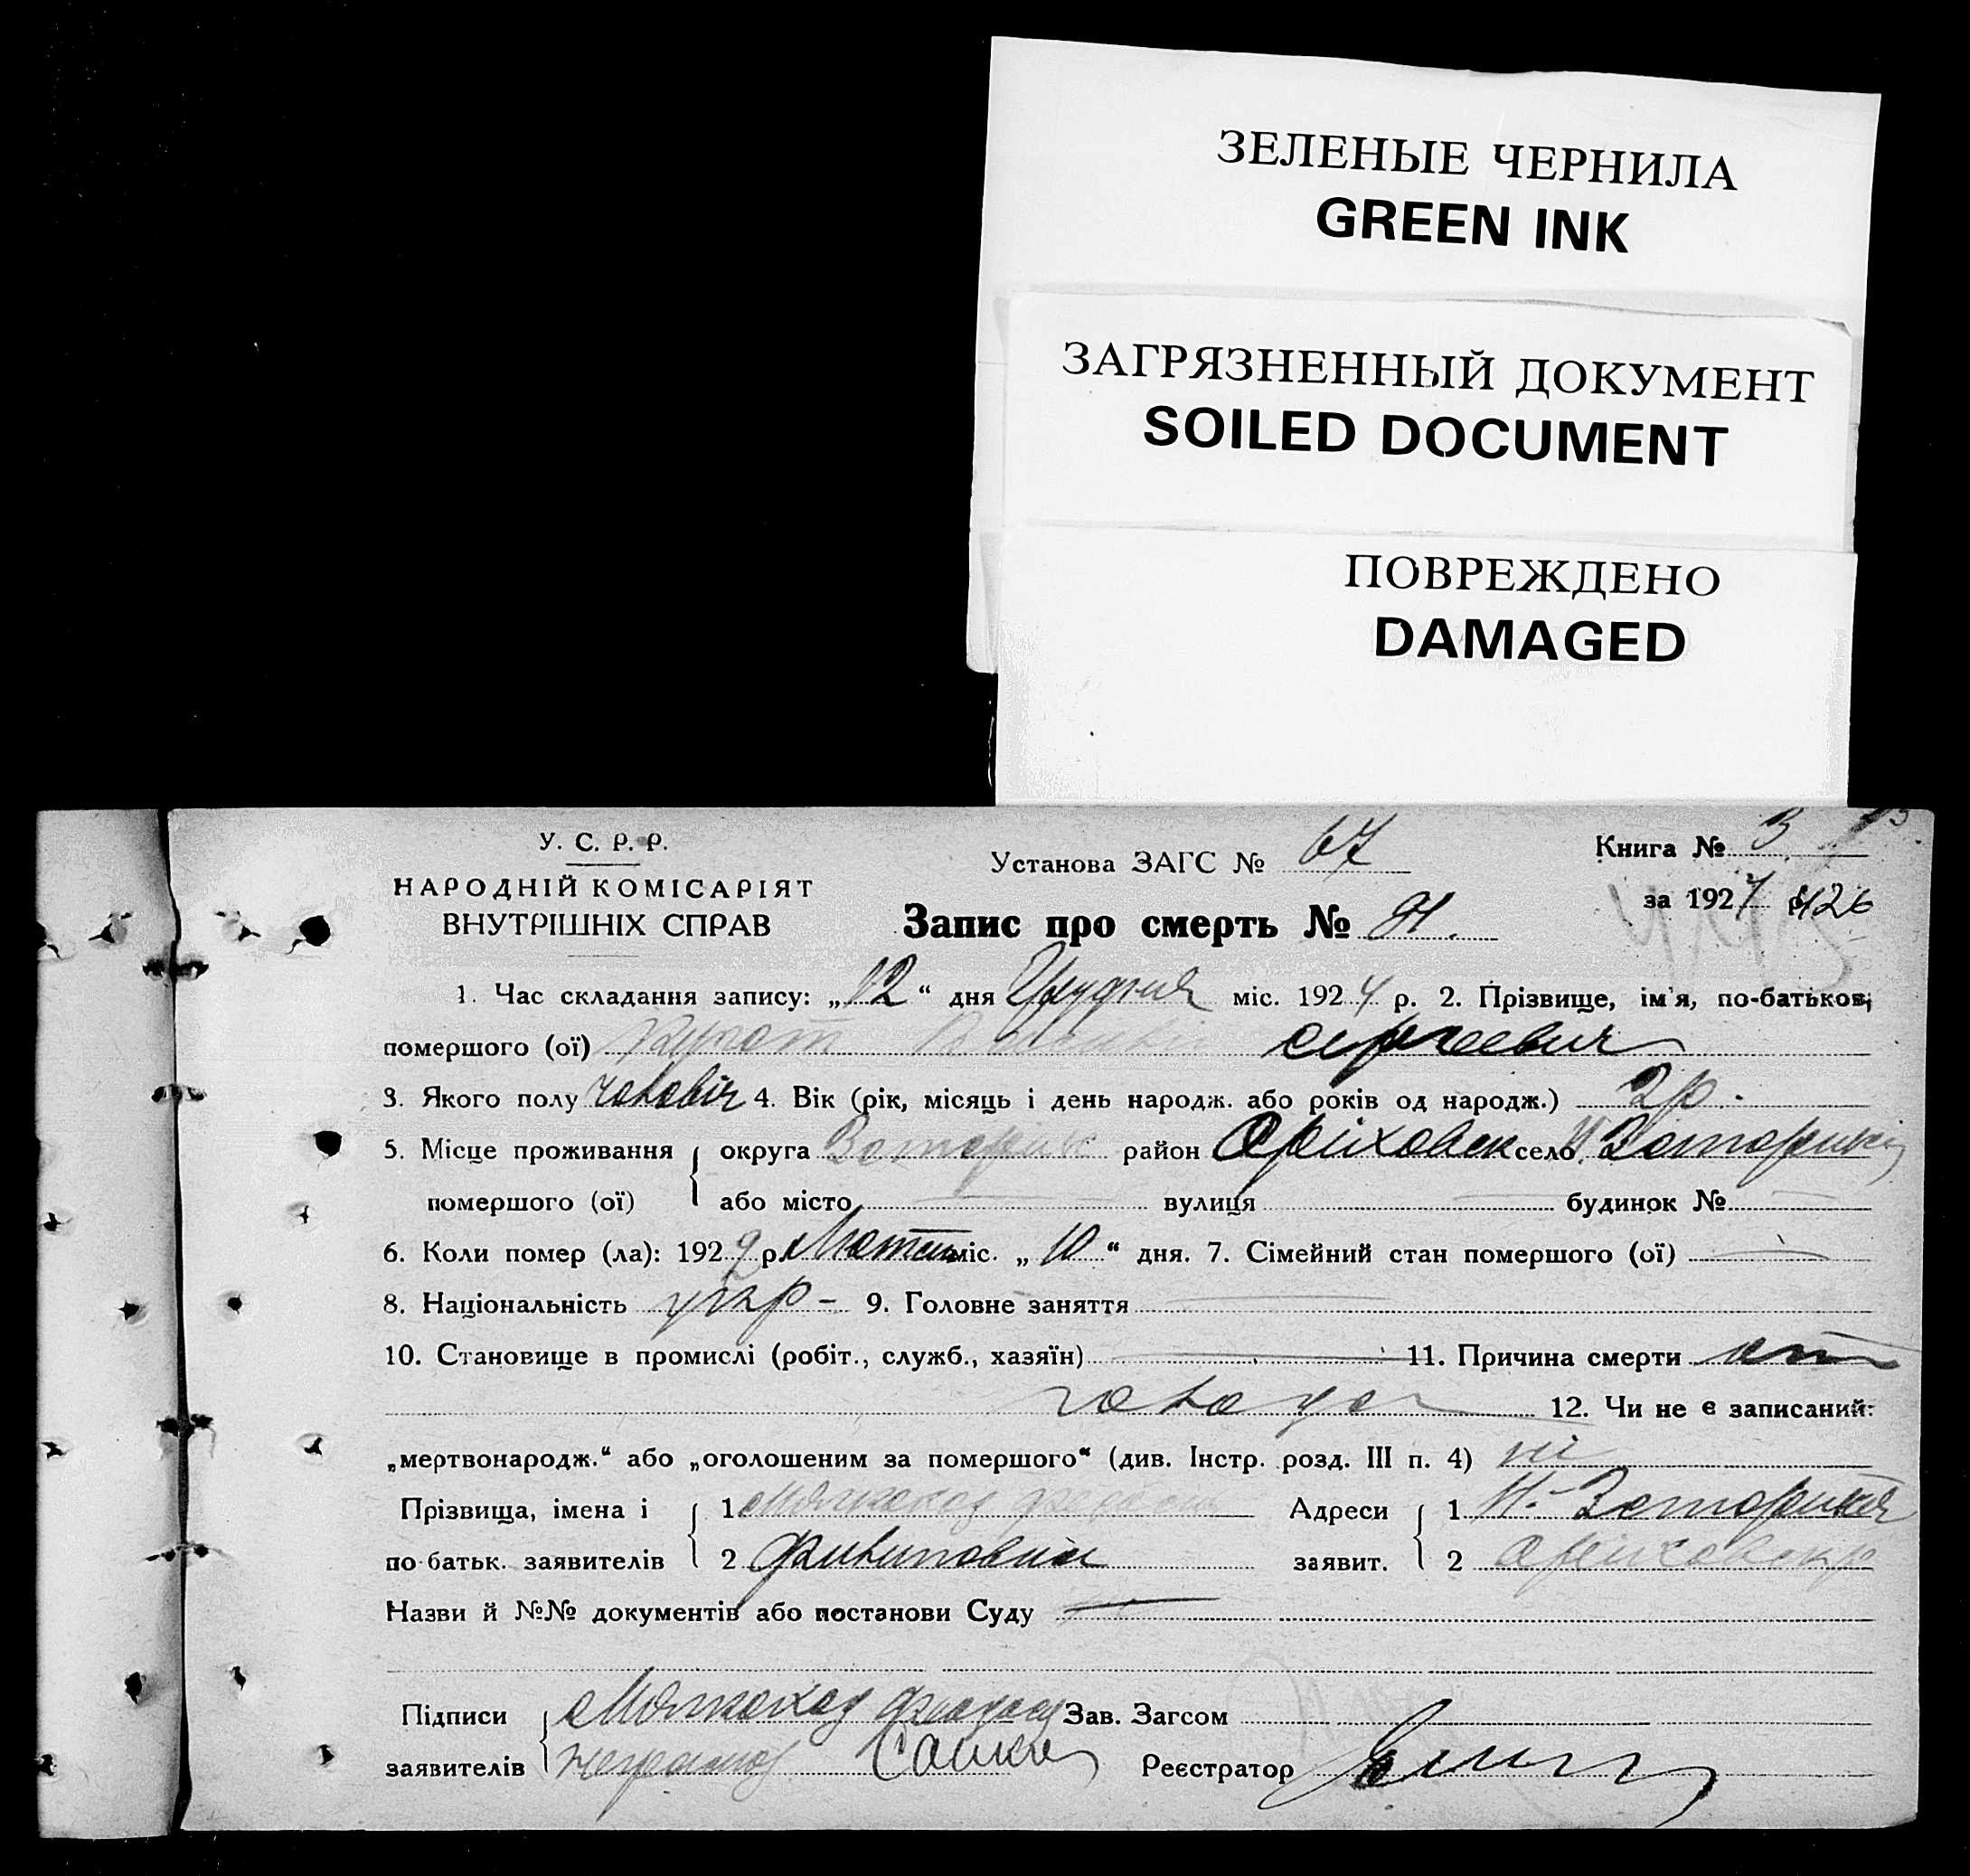 ЗЕЛЕНЫЕ ЧЕРНИЛА
GREEN INK
ЗАГРЯЗНЕННЫЙ ДОКУМЕНТ
SOILED DOCUMENT
ПОВРЕЖДЕНО
DAMAGED
У. С. Р. Р.
НАРОДНІЙ КОМІСАРІЯТ
ВНУТРІШНІХ СПРАВ
Установа ЗАГС № 67
Книга № 3
за 1927 р. 426
Запис про смерть №
1. Час складання запису: „12“ дня Грудня міс. 1924 р. 2. Прізвище, ім'я, по-батькові
помершого (ої) Сергеевич
3. Якого полу чоловіч 4. Вік (рік, місяць і день народж. або років од народж.) 2 р.
5. Місце проживання округа Запоріж район Оріховськ село
помершого (ої) або місто вулиця будинок №
6. Коли помер (ла): 192 р. Лютня міс. „10“ дня. 7. Сімейний стан помершого (ої) —
8. Національність укр - 9. Головне заняття —
10. Становище в промислі (робіт., служб., хазяїн) — 11. Причина смерти от
голода 12. Чи не є записаний:
„мертвонародж.“ або „оголошеним за помершого“ (див. Інстр. розд. III п. 4) ні
Прізвища, імена і 1 Адреси 1
по-батьк. заявителів 2 Филиповна заявит. 2
Назви й №№ документів або постанови Суду —
Підписи Зав. Загсом
заявителів Реєстратор